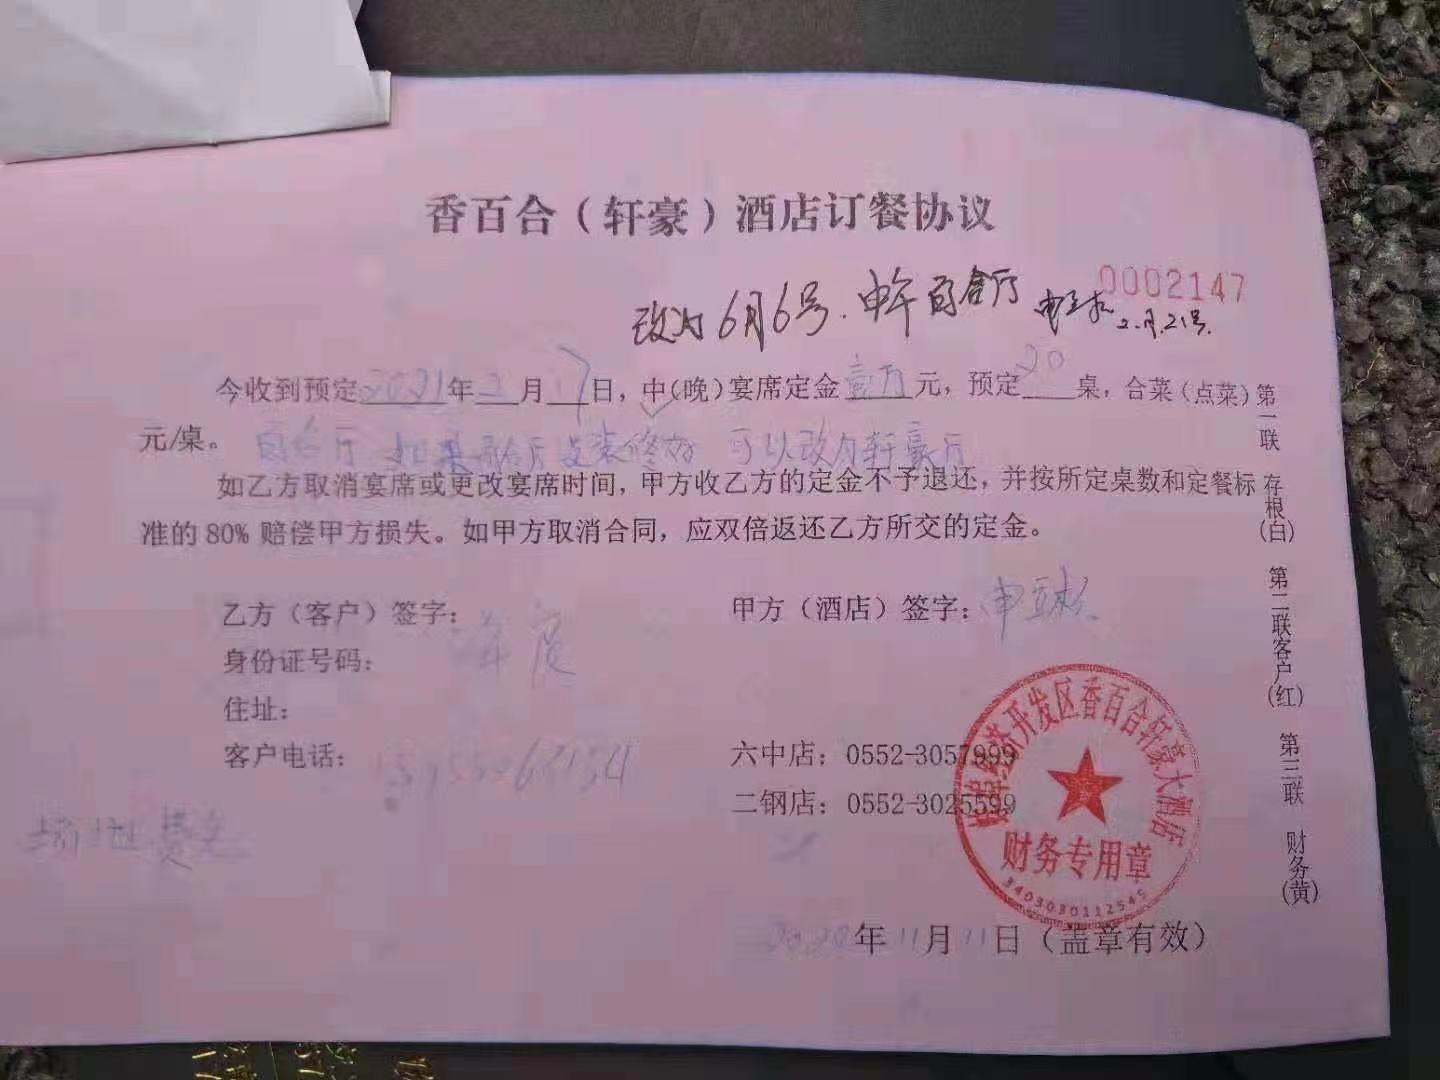 香百合（轩豪）酒店订餐协议
0002147
改为6月6号.中午百合厅
2.月.21号.
今收到预定2021年2月17日，中(晚)宴席定金壹万元，预定20桌，合菜(点菜)
元/桌。
百合厅 如果百合厅没装修好 可以改为轩豪厅
如乙方取消宴席或更改宴席时间，甲方收乙方的定金不予退还，并按所定桌数和定餐标
准的80%赔偿甲方损失。如甲方取消合同，应双倍返还乙方所交的定金。
乙方（客户）签字：
甲方（酒店）签字：
身份证号码：
住址：
客户电话：
六中店：0552-3057999
二钢店：0552-3025599
2020年11月11日（盖章有效）
经济开发区香百合轩豪大酒店
财务专用章
3403030112545
第一联 存根(白) 第二联客户(红) 第三联 财务(黄)